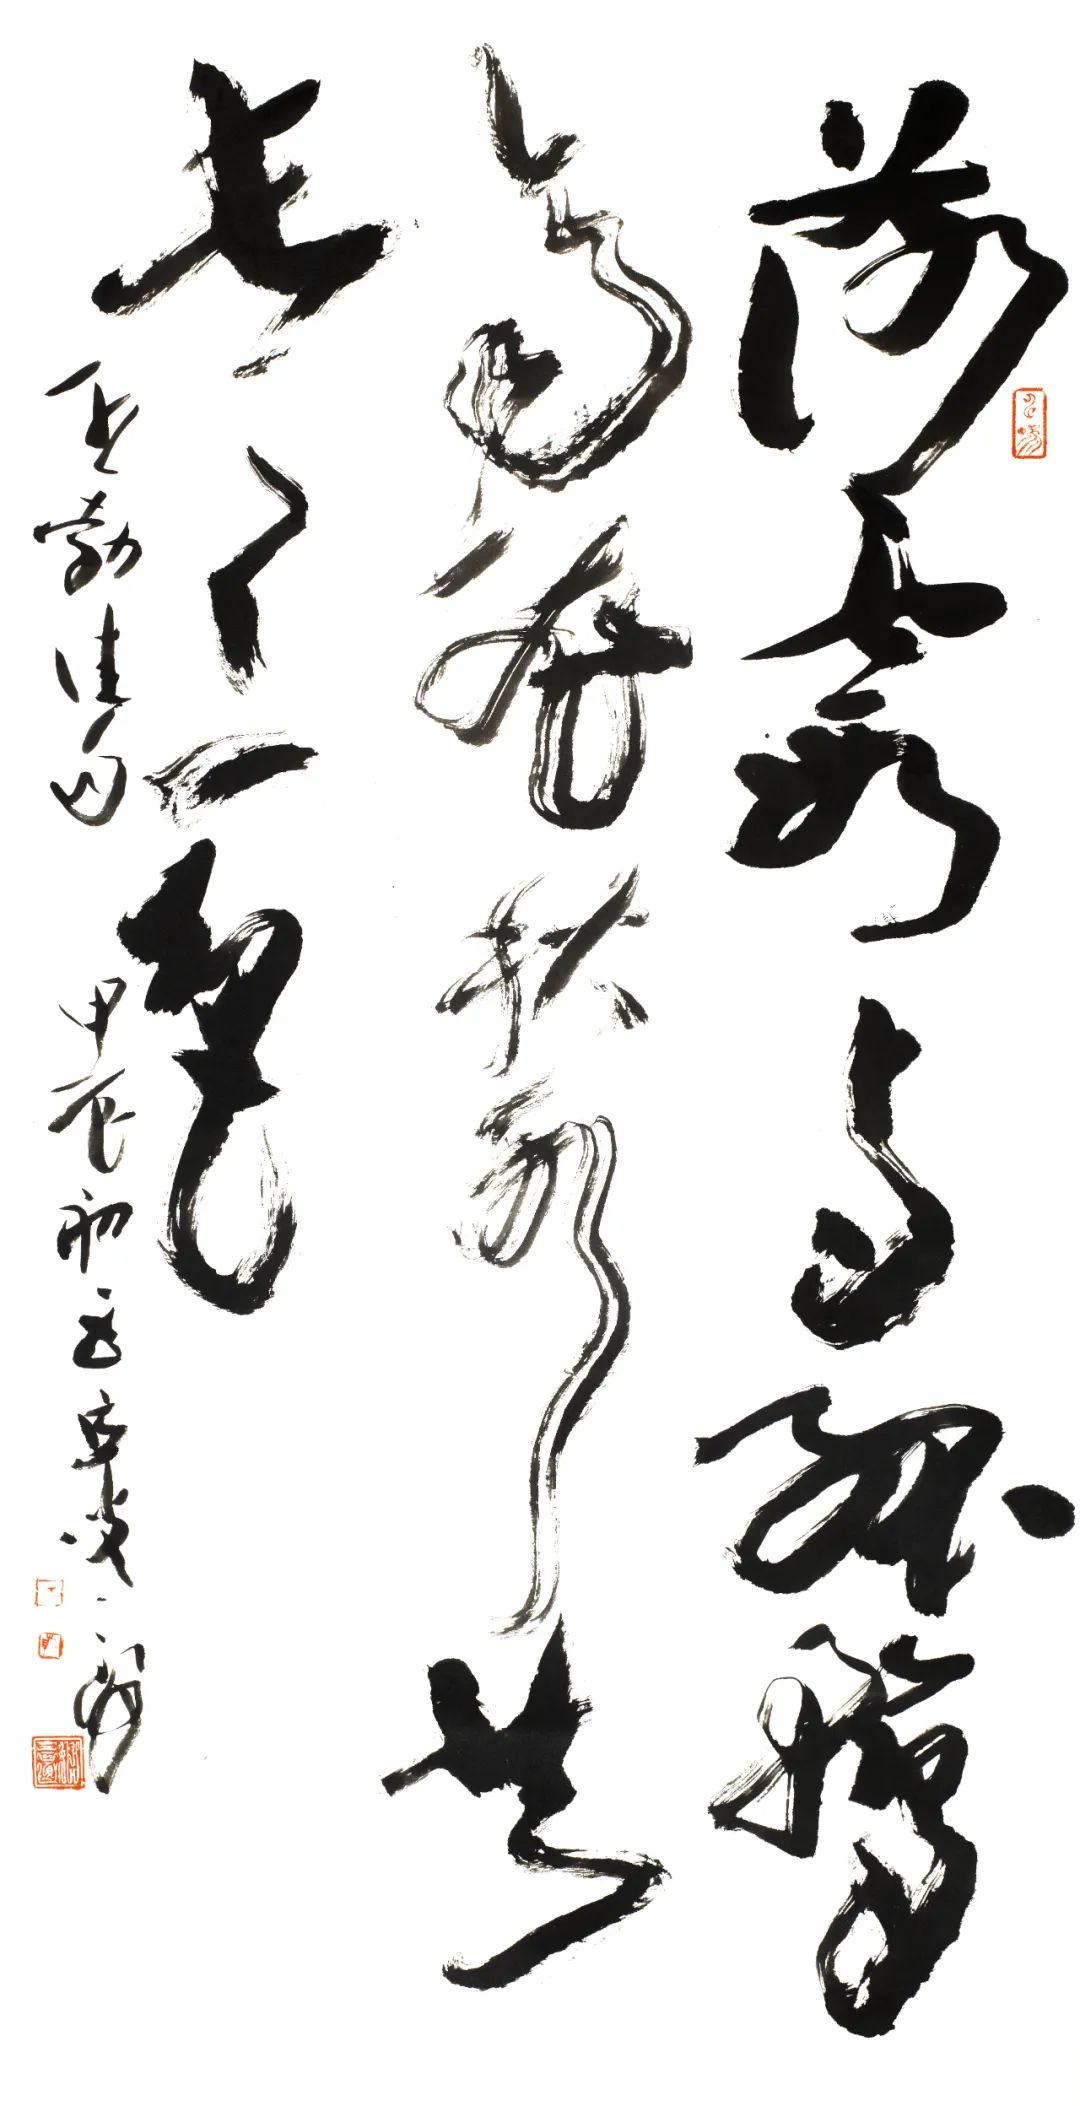 落霞与孤鹜
齐飞秋水共
长天一色
王勃佳句 甲辰初